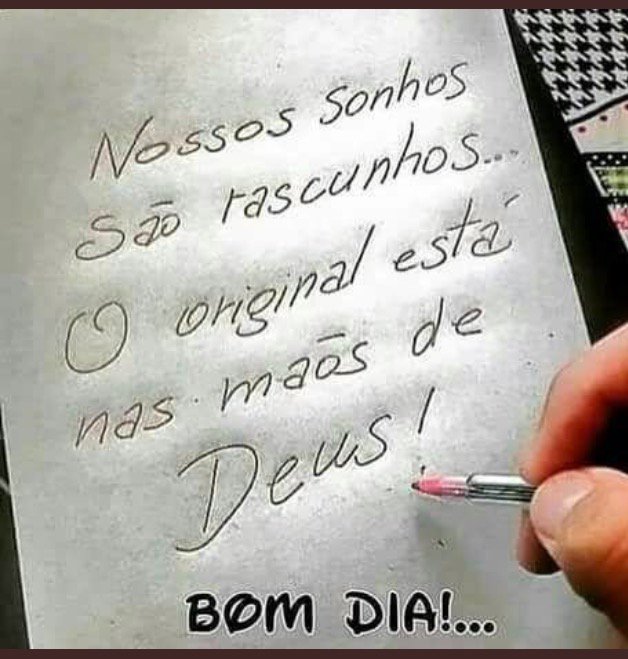 Nossos sonhos
são rascunhos...
O original está
nas mãos de
Deus!
BOM DIA!...